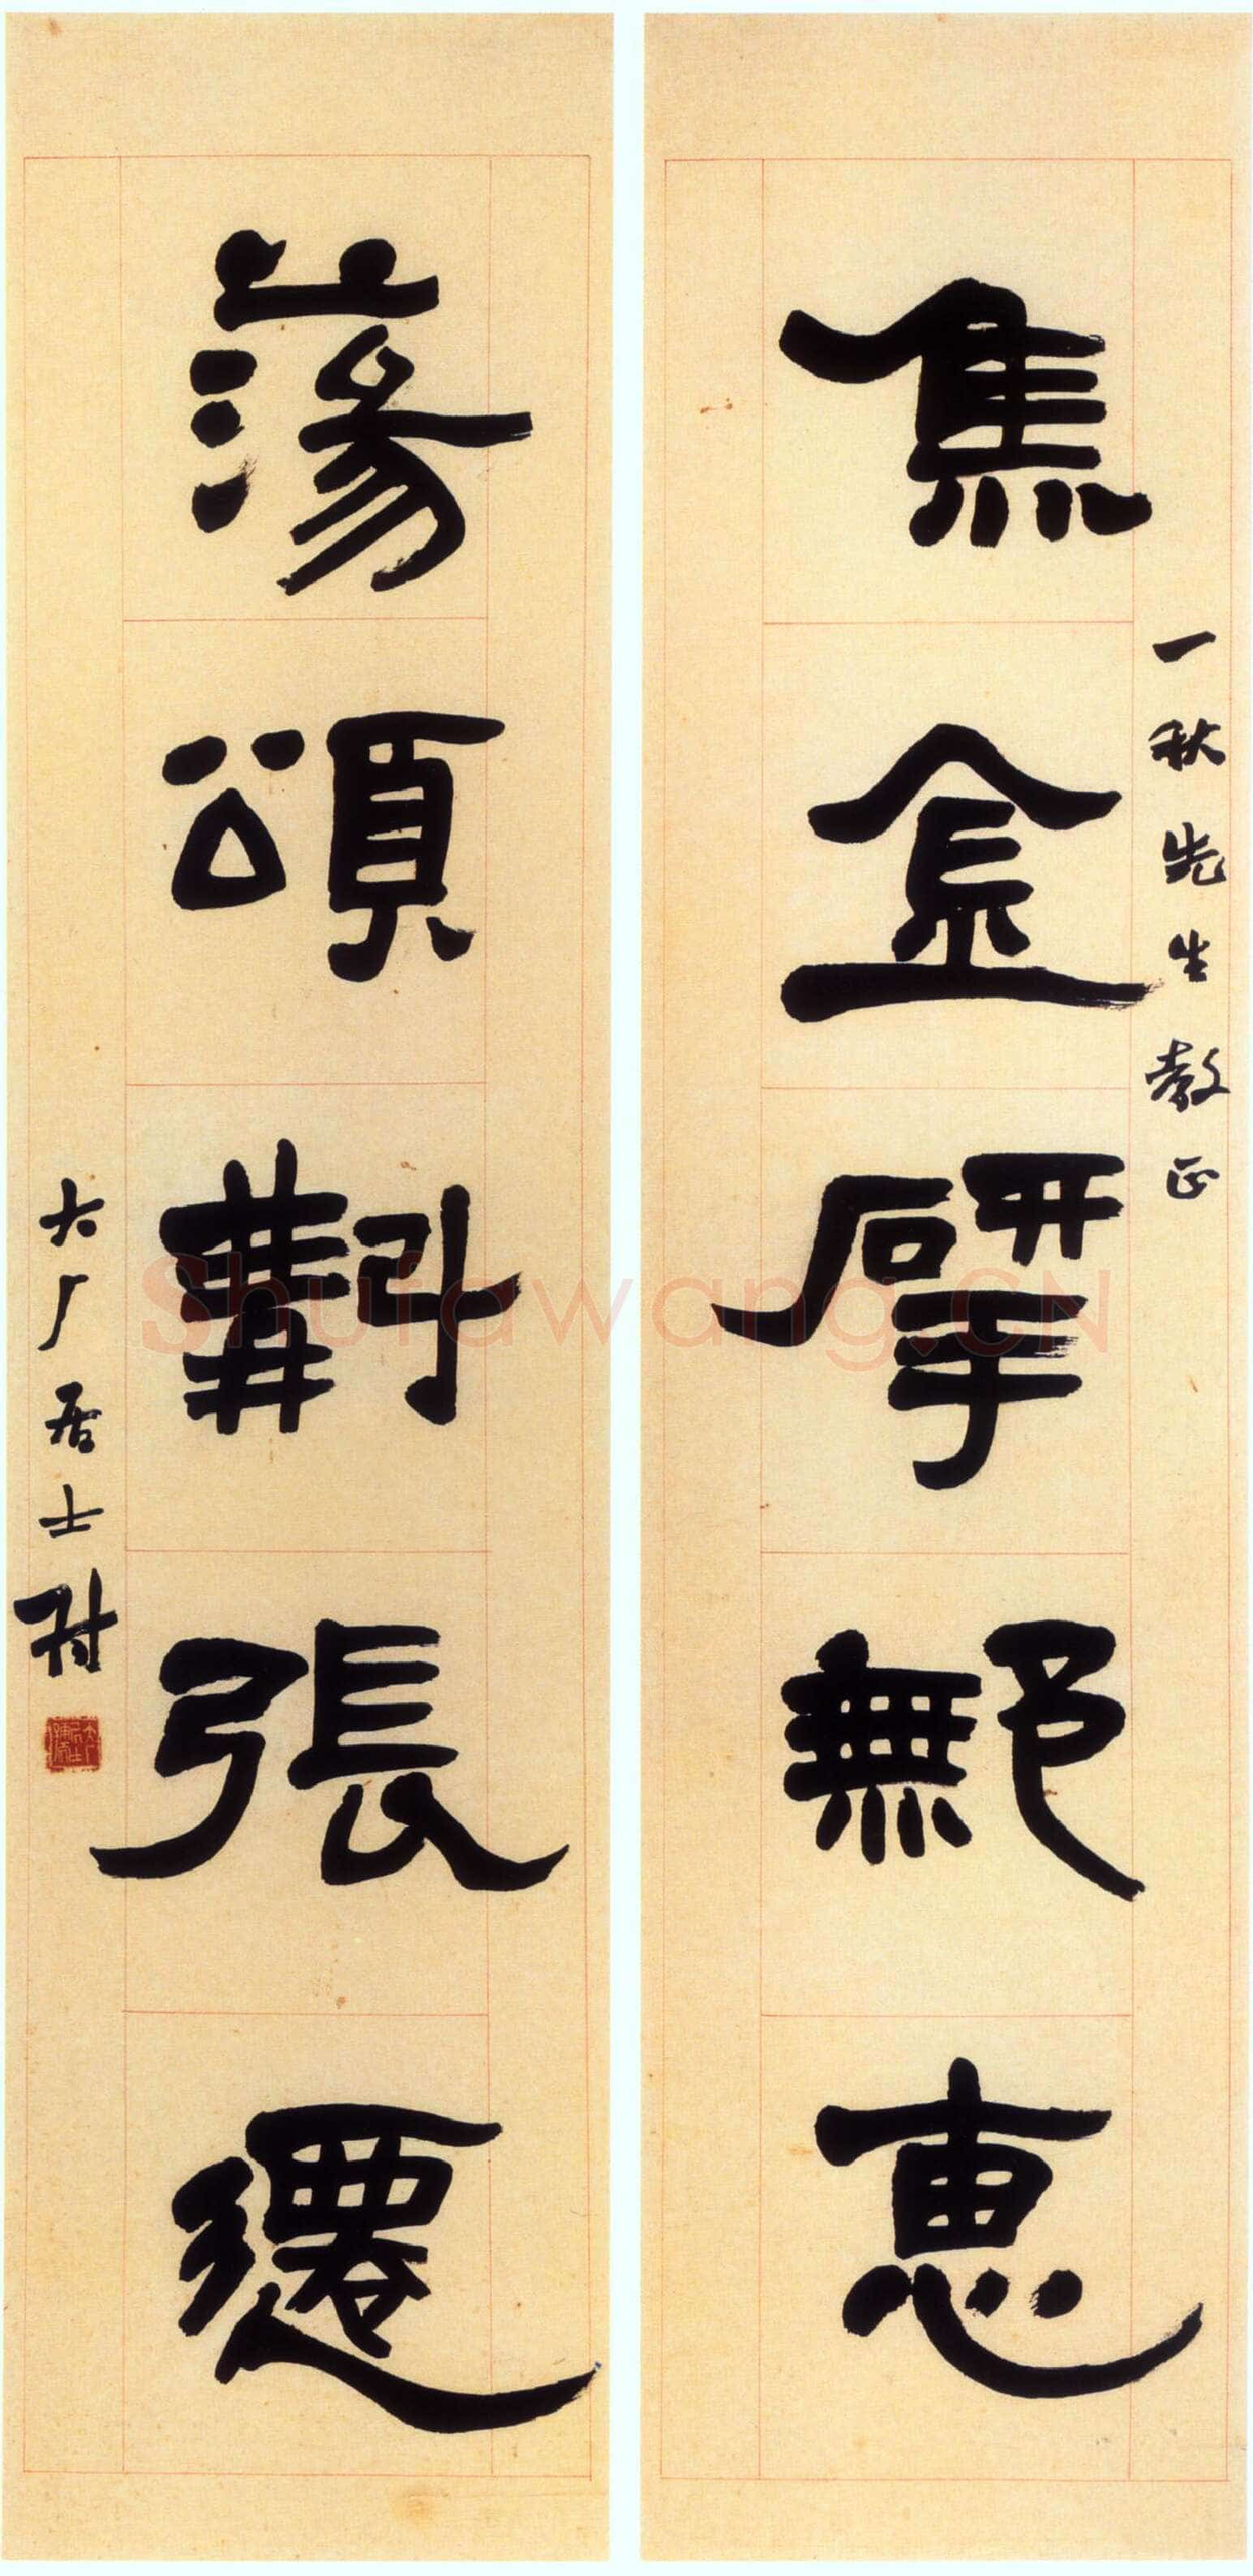 一秋先生教正
焦金揅鄦惠
蕩頌斠張遷
大厂居士
Shufawang.CN